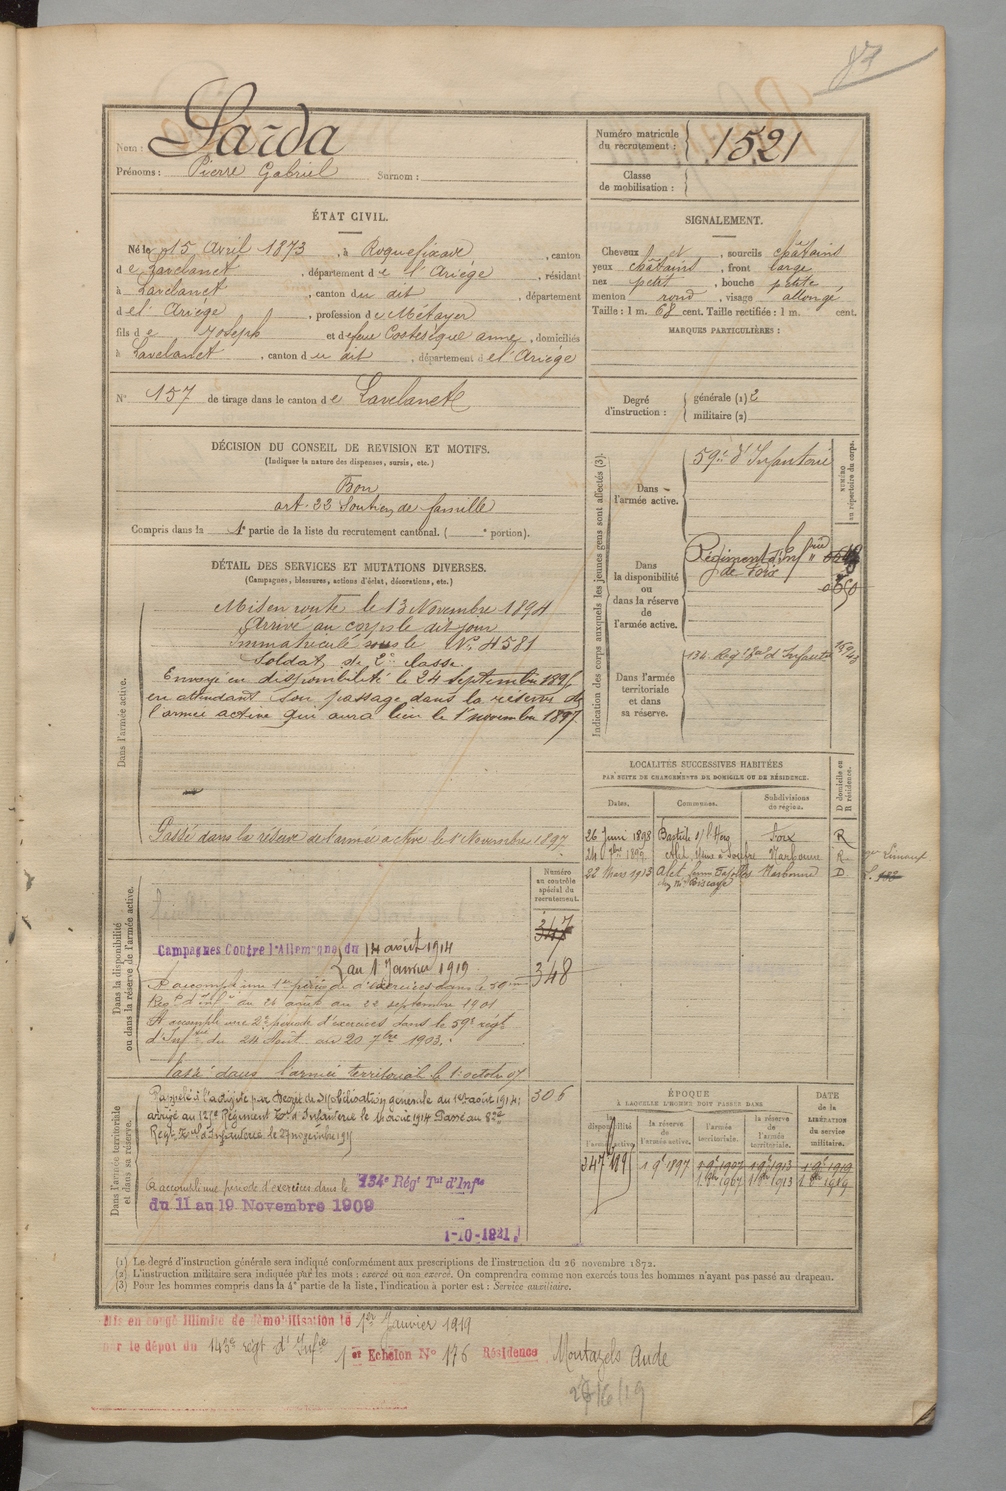 83
Nom : Sarda
Prénoms : Pierre Gabriel Surnom :
Numéro matricule
du recrutement : 1521
Classe
de mobilisation :
ÉTAT CIVIL.
Né le 15 Avril 1873, à Roquefixade, canton
de Lavelanet, département de l'Ariège, résidant
à Lavelanet, canton du dit, département
de l'Ariège, profession de Métayer
fils de Joseph et de feue Costesèque anne, domiciliés
à Lavelanet, canton du dit, département de l'Ariège
N° 157 de tirage dans le canton de Lavelanet
SIGNALEMENT.
Cheveux et, sourcils châtains
yeux châtains, front large
nez petit, bouche petite,
menton rond, visage allongé
Taille : 1 m. 68 cent. Taille rectifiée : 1 m. cent.
MARQUES PARTICULIÈRES :
Degré
d'instruction :
générale (1) 2
militaire (2)
DÉCISION DU CONSEIL DE REVISION ET MOTIFS.
(Indiquer la nature des dispenses, sursis, etc.)
Bon
art. 22 Soutien de famille
Compris dans la 1e partie de la liste du recrutement cantonal. ( e portion).
DÉTAIL DES SERVICES ET MUTATIONS DIVERSES.
(Campagnes, blessures, actions d'éclat, décorations, etc.)
Dans l'armée active.
Mis en route le 13 Novembre 1894
Arrivé au corps le dit jour
Immatriculé sous le N° 4581
Soldat de 2e classe.
Envoyé en disponibilité le 24 septembre 1895
en attendant son passage dans la réserve de
l'armée active qui aura lieu le 1er novembre 1897.
Passé dans la réserve de l'armée active le 1er Novembre 1897.
Indication des corps auxquels les jeunes gens sont affectés (3).
NUMÉRO
au répertoire du corps.
Dans
l'armée active.
59e d'Infanterie
Dans
la disponibilité
ou
dans la réserve
de
l'armée active.
Régiment d'Infrie
de Foix
Dans l'armée
territoriale
et dans
sa réserve.
134 Regt Ter d'Infanterie
LOCALITÉS SUCCESSIVES HABITÉES
PAR SUITE DE CHANGEMENTS DE DOMICILE OU DE RÉSIDENCE.
Dates. Communes. Subdivisions
de région.
D domicile ou
R résidence.
26 Juin 1898 Bastide s/ l'Hers Foix R
24 7bre 1899 Alet Narbonne R.
22 Mars 1913 Alet Narbonne D
Limoux
Dans la disponibilité
ou dans la réserve de l'armée active.
Numéro
au contrôle
spécial du
recrutement.
347
348
Campagnes Contre l'Allemagne du 14 août 1914
au 1 Janvier 1919
A accompli une 1re période d'exercices dans le 59me
Régt d'Infie du 26 août au 22 septembre 1901
A accompli une 2e période d'exercices dans le 59e régt
d'Infrie du 24 Août au 20 7bre 1903.
Passé dans l'armée territoriale le 1er octobre 07
Dans l'armée territoriale
et dans sa réserve.
306
Rappelé à l'activité par Décret de Mobilisation générale du 1er août 1914;
arrivé au 127e Régiment Ter d'Infanterie le 14 août 1914 Passé au 82e
Régt Ter d'Infanterie le 27 novembre 1915
A accompli une période d'exercices dans le 134e Régt Tal d'Infie
du 11 au 19 Novembre 1909
1-10-1921
ÉPOQUE
À LAQUELLE L'HOMME DOIT PASSER DANS
la disponibilité de l'armée active.
la réserve
de
l'armée active.
l'armée
territoriale.
la réserve
de
l'armée
territoriale.
DATE
de la
LIBÉRATION
du service
militaire.
347 1 9e 1897 1 9e 1907 1 9e 1913 1 9e 1919
1 8bre 1907 1 8bre 1913 1 8bre 1919
(1) Le degré d'instruction générale sera indiqué conformément aux prescriptions de l'instruction du 26 novembre 1872.
(2) L'instruction militaire sera indiquée par les mots : exercé ou non exercé. On comprendra comme non exercés tous les hommes n'ayant pas passé au drapeau.
(3) Pour les hommes compris dans la 4e partie de la liste, l'indication à porter est : Service auxiliaire.
Mis en congé illimité de démobilisation le 1er Janvier 1919
par le dépôt du 143e régt d'Infie 1er Echelon N° 176 Résidence Montazels Aude